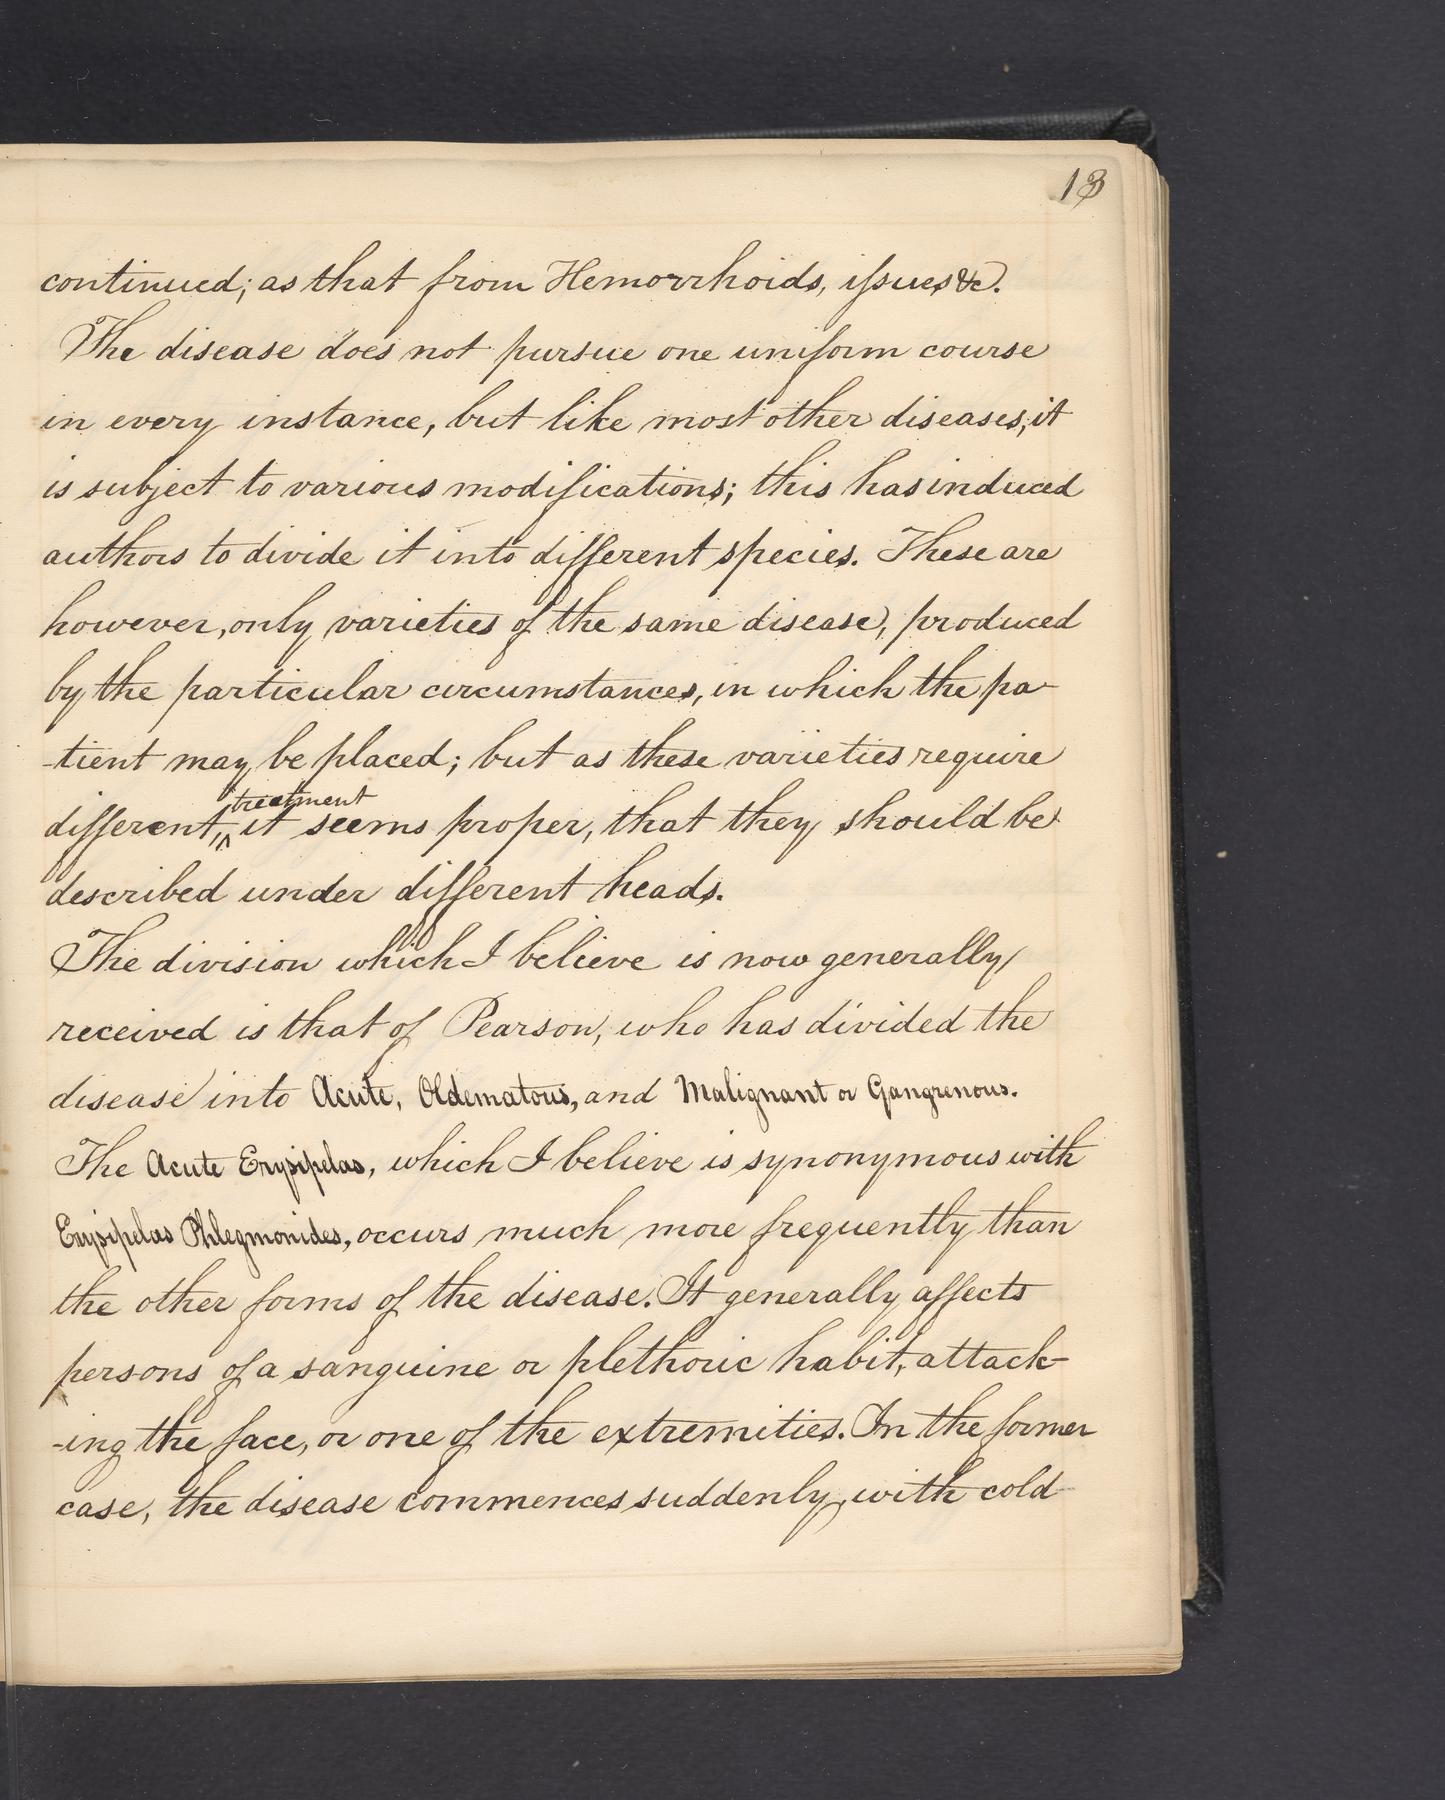 13
continued; as that from Hemorrhoids, issues &c.
The disease does not pursue one uniform course
in every instance, but like most other diseases, it
is subject to various modifications; this has induced
authors to divide it into different species. These are
however, only varieties of the same disease, produced
by the particular circumstances, in which the pa-
-tient may be placed; but as these varieties require
treatment
different, ^ it seems proper, that they should be
described under different heads.
The division which I believe is now generally
received is that of Pearson, who has divided the
disease into Acute, Oldematous, and Malignant or Gangrenous.
The Acute Erysipelas, which I believe is synonymous with
Erysipelas Phlegmonides, occurs much more frequently than
the other forms of the disease. It generally affects
persons of a sanguine or plethoric habit, attack-
-ing the face, or one of the extremities. In the former
case, the disease commences suddenly, with cold